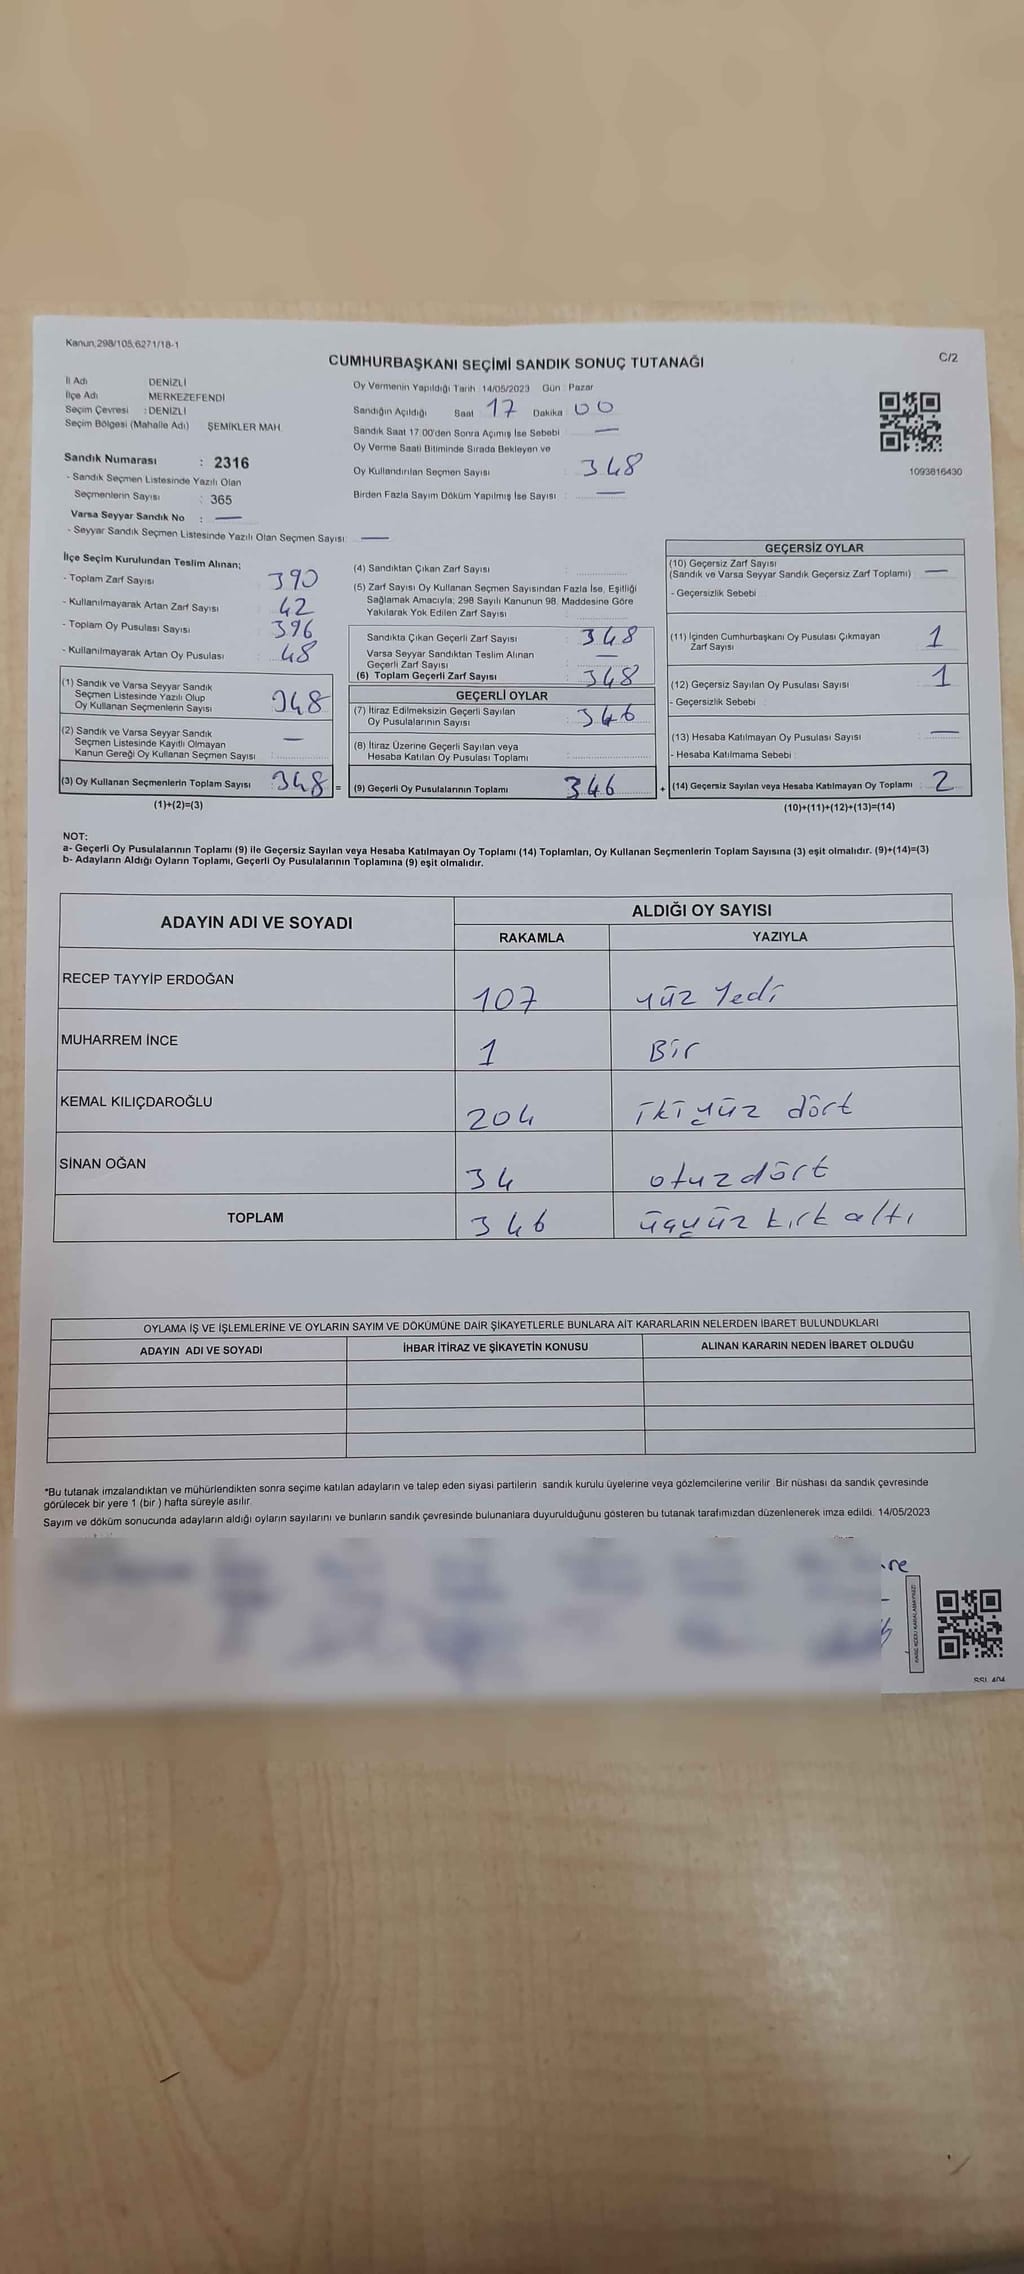 Kanun,298/105,6271/18-1
C/2
CUMHURBAŞKANI SEÇİMİ SANDIK SONUÇ TUTANAĞI
İl Adı DENİZLİ
İlçe Adı MERKEZEFENDİ
Seçim Çevresi : DENİZLİ
Seçim Bölgesi (Mahalle Adı) ŞEMİKLER MAH.
Sandık Numarası : 2316
- Sandık Seçmen Listesinde Yazılı Olan
Seçmenlerin Sayısı : 365
Varsa Seyyar Sandık No : —
- Seyyar Sandık Seçmen Listesinde Yazılı Olan Seçmen Sayısı: —
Oy Vermenin Yapıldığı Tarih 14/05/2023 Gün : Pazar
Sandığın Açıldığı Saat 17 Dakika 00
Sandık Saat 17.00'den Sonra Açımış İse Sebebi : —
Oy Verme Saati Bitiminde Sırada Bekleyen ve
Oy Kullandırılan Seçmen Sayısı : 348
Birden Fazla Sayım Döküm Yapılmış İse Sayısı : —
1093816430
İlçe Seçim Kurulundan Teslim Alınan;
- Toplam Zarf Sayısı 390
- Kullanılmayarak Artan Zarf Sayısı 42
- Toplam Oy Pusulası Sayısı 396
- Kullanılmayarak Artan Oy Pusulası 48
(1) Sandık ve Varsa Seyyar Sandık
Seçmen Listesinde Yazılı Olup
Oy Kullanan Seçmenlerin Sayısı 348
(2) Sandık ve Varsa Seyyar Sandık
Seçmen Listesinde Kayıtlı Olmayan
Kanun Gereği Oy Kullanan Seçmen Sayısı : —
(3) Oy Kullanan Seçmenlerin Toplam Sayısı : 348 =
(1)+(2)=(3)
(4) Sandıktan Çıkan Zarf Sayısı :
(5) Zarf Sayısı Oy Kullanan Seçmen Sayısından Fazla İse, Eşitliği
Sağlamak Amacıyla; 298 Sayılı Kanunun 98. Maddesine Göre
Yakılarak Yok Edilen Zarf Sayısı :
Sandıkta Çıkan Geçerli Zarf Sayısı : 348
Varsa Seyyar Sandıktan Teslim Alınan
Geçerli Zarf Sayısı : —
(6) Toplam Geçerli Zarf Sayısı : 348
GEÇERLİ OYLAR
(7) İtiraz Edilmeksizin Geçerli Sayılan
Oy Pusulalarının Sayısı : 346
(8) İtiraz Üzerine Geçerli Sayılan veya
Hesaba Katılan Oy Pusulası Toplamı :
(9) Geçerli Oy Pusulalarının Toplamı : 346 +
GEÇERSİZ OYLAR
(10) Geçersiz Zarf Sayısı
(Sandık ve Varsa Seyyar Sandık Geçersiz Zarf Toplamı) : —
- Geçersizlik Sebebi :
(11) İçinden Cumhurbaşkanı Oy Pusulası Çıkmayan
Zarf Sayısı : 1
(12) Geçersiz Sayılan Oy Pusulası Sayısı : 1
- Geçersizlik Sebebi :
(13) Hesaba Katılmayan Oy Pusulası Sayısı : —
- Hesaba Katılmama Sebebi :
(14) Geçersiz Sayılan veya Hesaba Katılmayan Oy Toplamı : 2
(10)+(11)+(12)+(13)=(14)
NOT:
a- Geçerli Oy Pusulalarının Toplamı (9) ile Geçersiz Sayılan veya Hesaba Katılmayan Oy Toplamı (14) Toplamları, Oy Kullanan Seçmenlerin Toplam Sayısına (3) eşit olmalıdır. (9)+(14)=(3)
b- Adayların Aldığı Oyların Toplamı, Geçerli Oy Pusulalarının Toplamına (9) eşit olmalıdır.
ADAYIN ADI VE SOYADI ALDIĞI OY SAYISI
RAKAMLA YAZIYLA
RECEP TAYYİP ERDOĞAN 107 yüz Yedi
MUHARREM İNCE 1 Bir
KEMAL KILIÇDAROĞLU 204 ikiyüz dört
SİNAN OĞAN 34 otuzdört
TOPLAM 346 üçyüz kırk altı
OYLAMA İŞ VE İŞLEMLERİNE VE OYLARIN SAYIM VE DÖKÜMÜNE DAİR ŞİKAYETLERLE BUNLARA AİT KARARLARIN NELERDEN İBARET BULUNDUKLARI
ADAYIN ADI VE SOYADI İHBAR İTİRAZ VE ŞİKAYETİN KONUSU ALINAN KARARIN NEDEN İBARET OLDUĞU
*Bu tutanak imzalandıktan ve mühürlendikten sonra seçime katılan adayların ve talep eden siyasi partilerin sandık kurulu üyelerine veya gözlemcilerine verilir. Bir nüshası da sandık çevresinde
görülecek bir yere 1 (bir ) hafta süreyle asılır.
Sayım ve döküm sonucunda adayların aldığı oyların sayılarını ve bunların sandık çevresinde bulunanlara duyurulduğunu gösteren bu tutanak tarafımızdan düzenlenerek imza edildi. 14/05/2023